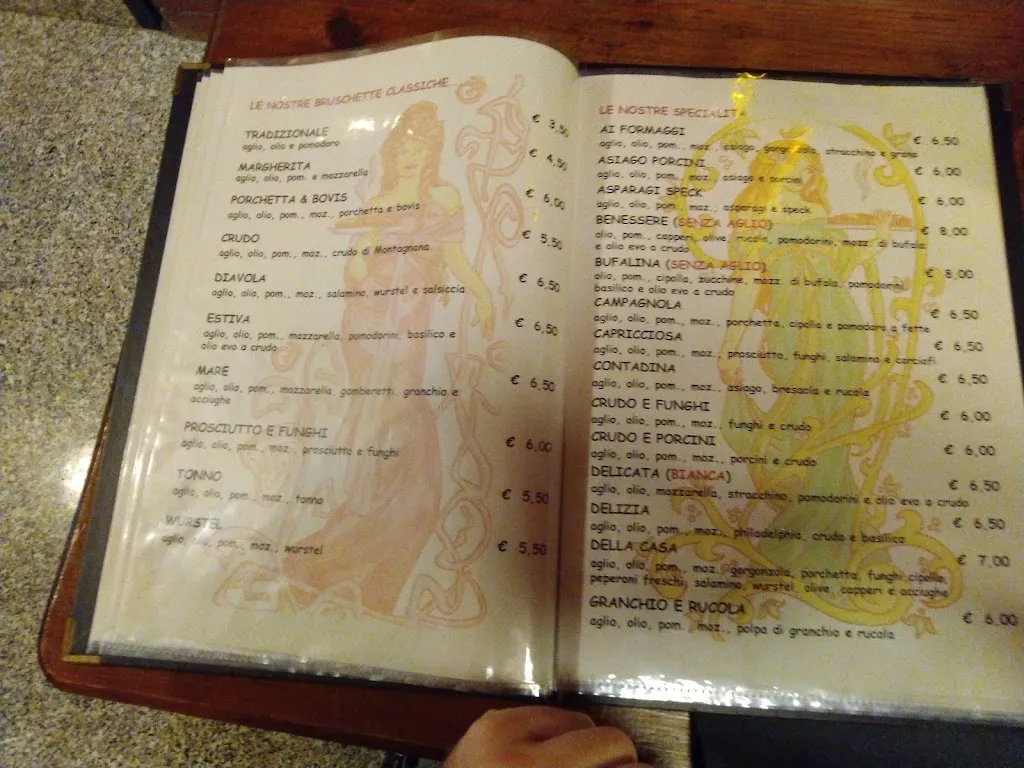 LE NOSTRE BRUSCHETTE CLASSICHE
TRADIZIONALE € 3,50
aglio, olio e pomodoro
MARGHERITA € 4,50
aglio, olio, pom. e mozzarella
PORCHETTA & BOVIS € 6,00
aglio, olio, pom., moz., porchetta e bovis
CRUDO € 5,50
aglio, olio, pom., moz., crudo di Montagnana
DIAVOLA € 6,50
aglio, olio, pom., moz., salamino, wurstel e salsiccia
ESTIVA € 6,50
aglio, olio, pom., mozzarella, pomodorini, basilico e
olio evo a crudo
MARE € 6,50
aglio, olio, pom., mozzarella, gamberetti, granchio e
acciughe
PROSCIUTTO E FUNGHI € 6,00
aglio, olio, pom., moz., prosciutto e funghi
TONNO € 5,50
aglio, olio, pom., moz., tonno
WURSTEL € 5,50
aglio, olio, pom., moz., wurstel
LE NOSTRE SPECIALITA'
AI FORMAGGI € 6,50
aglio, olio, pom., moz., asiago, gorgonzola, stracchino e grana
ASIAGO PORCINI € 6,00
aglio, olio, pom., moz., asiago e porcini
ASPARAGI SPECK € 6,00
aglio, olio, pom., moz., asparagi e speck
BENESSERE (SENZA AGLIO) € 8,00
olio, pom., capperi, olive, rucola, pomodorini, mozz. di bufala
e olio evo a crudo
BUFALINA (SENZA AGLIO) € 8,00
olio, pom., cipolla, zucchine, mozz. di bufala, pomodorini,
basilico e olio evo a crudo
CAMPAGNOLA € 6,50
aglio, olio, pom., moz., porchetta, cipolla e pomodoro a fette
CAPRICCIOSA € 6,50
aglio, olio, pom., moz., prosciutto, funghi, salamino e carciofi
CONTADINA € 6,50
aglio, olio, pom., moz., asiago, bresaola e rucola
CRUDO E FUNGHI € 6,00
aglio, olio, pom., moz., funghi e crudo
CRUDO E PORCINI € 6,00
aglio, olio, pom., moz., porcini e crudo
DELICATA (BIANCA) € 6,50
aglio, olio, mozzarella, stracchino, pomodorini e olio evo a crudo
DELIZIA € 6,50
aglio, olio, pom., moz., philadelphia, crudo e basilico
DELLA CASA € 7,00
aglio, olio, pom., moz., gorgonzola, porchetta, funghi, cipolla,
peperoni freschi, salamino, wurstel, olive, capperi e acciughe
GRANCHIO E RUCOLA € 6,00
aglio, olio, pom., moz., polpa di granchio e rucola